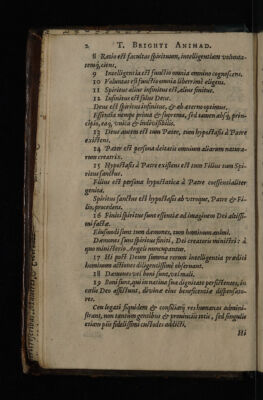 2. T. BRIGHTI ANIMAD.
8 Ratio est facultas spirituum, intelligentiam voluntatemq́;
ciens.
9 Intelligentia est functio omnia omnino cognoscens.
10 Voluntas est functio omnia liberrimè eligens.
11 Spiritus alius infinitus est, alius finitus.
12 Infinitus est solus Deus.
Deus est spiritus infinitus, & ab æterno optimus.
Essentia nempe prima & suprema, sed tamen absq́; principio,
eaq́; vnica & indivisibilis.
13 Deus autem est tum Pater, tum hypostasis à Patre
existens.
14 Pater est persona deitatis omnium aliarum naturarum
creatrix.
15 Hypostasis à Patre existens est tum Filius tum Spiritus
sanctus.
Filius est persona hypostatica à Patre coessentialiter
genita.
Spiritus sanctus est hypostasis ab vtroque, Patre & Filio,
procedens.
16 Finiti spiritus sunt essentiæ ad imaginem Dei altissimi
factæ.
Eiusmodi sunt tum dæmones, tum hominum animi.
Dæmones sunt spiritus finiti, Dei creatoris ministri: à
quo ministerio Angeli nuncupantur.
17 Hi post Deum summa rerum intelligentia præditi
hominum actiones diligentissimè observant.
18 Dæmones vel boni sunt, vel mali.
19 Boni sunt, qui in nativa sua dignitate persistentes, in
cælis Deo assistunt, divinæ eius beneficentiæ dispensatores.
Coelegati siquidem & consiliarij res humanas administrant,
non tantùm gentibus & provincijs totis, sed singulis
etiam pijs fidelissimi custodes addicti.
Hi